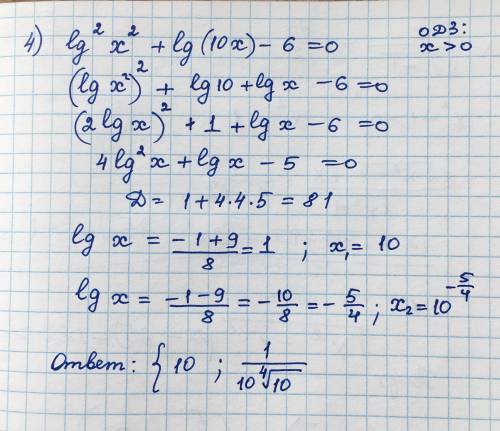 4) lg² x² + lg(10x) - 6 = 0 ОДЗ: x > 0
(lg x²)² + lg10 + lg x - 6 = 0
(2 lg x)² + 1 + lg x - 6 = 0
4 lg² x + lg x - 5 = 0
Д = 1 + 4·4·5 = 81
lg x = (-1+9)/8 = 1 ; x₁ = 10
lg x = (-1-9)/8 = -10/8 = -5/4 ; x₂ = 10^(-5/4)
Ответ: { 10 ; 1/(10⁴√10)